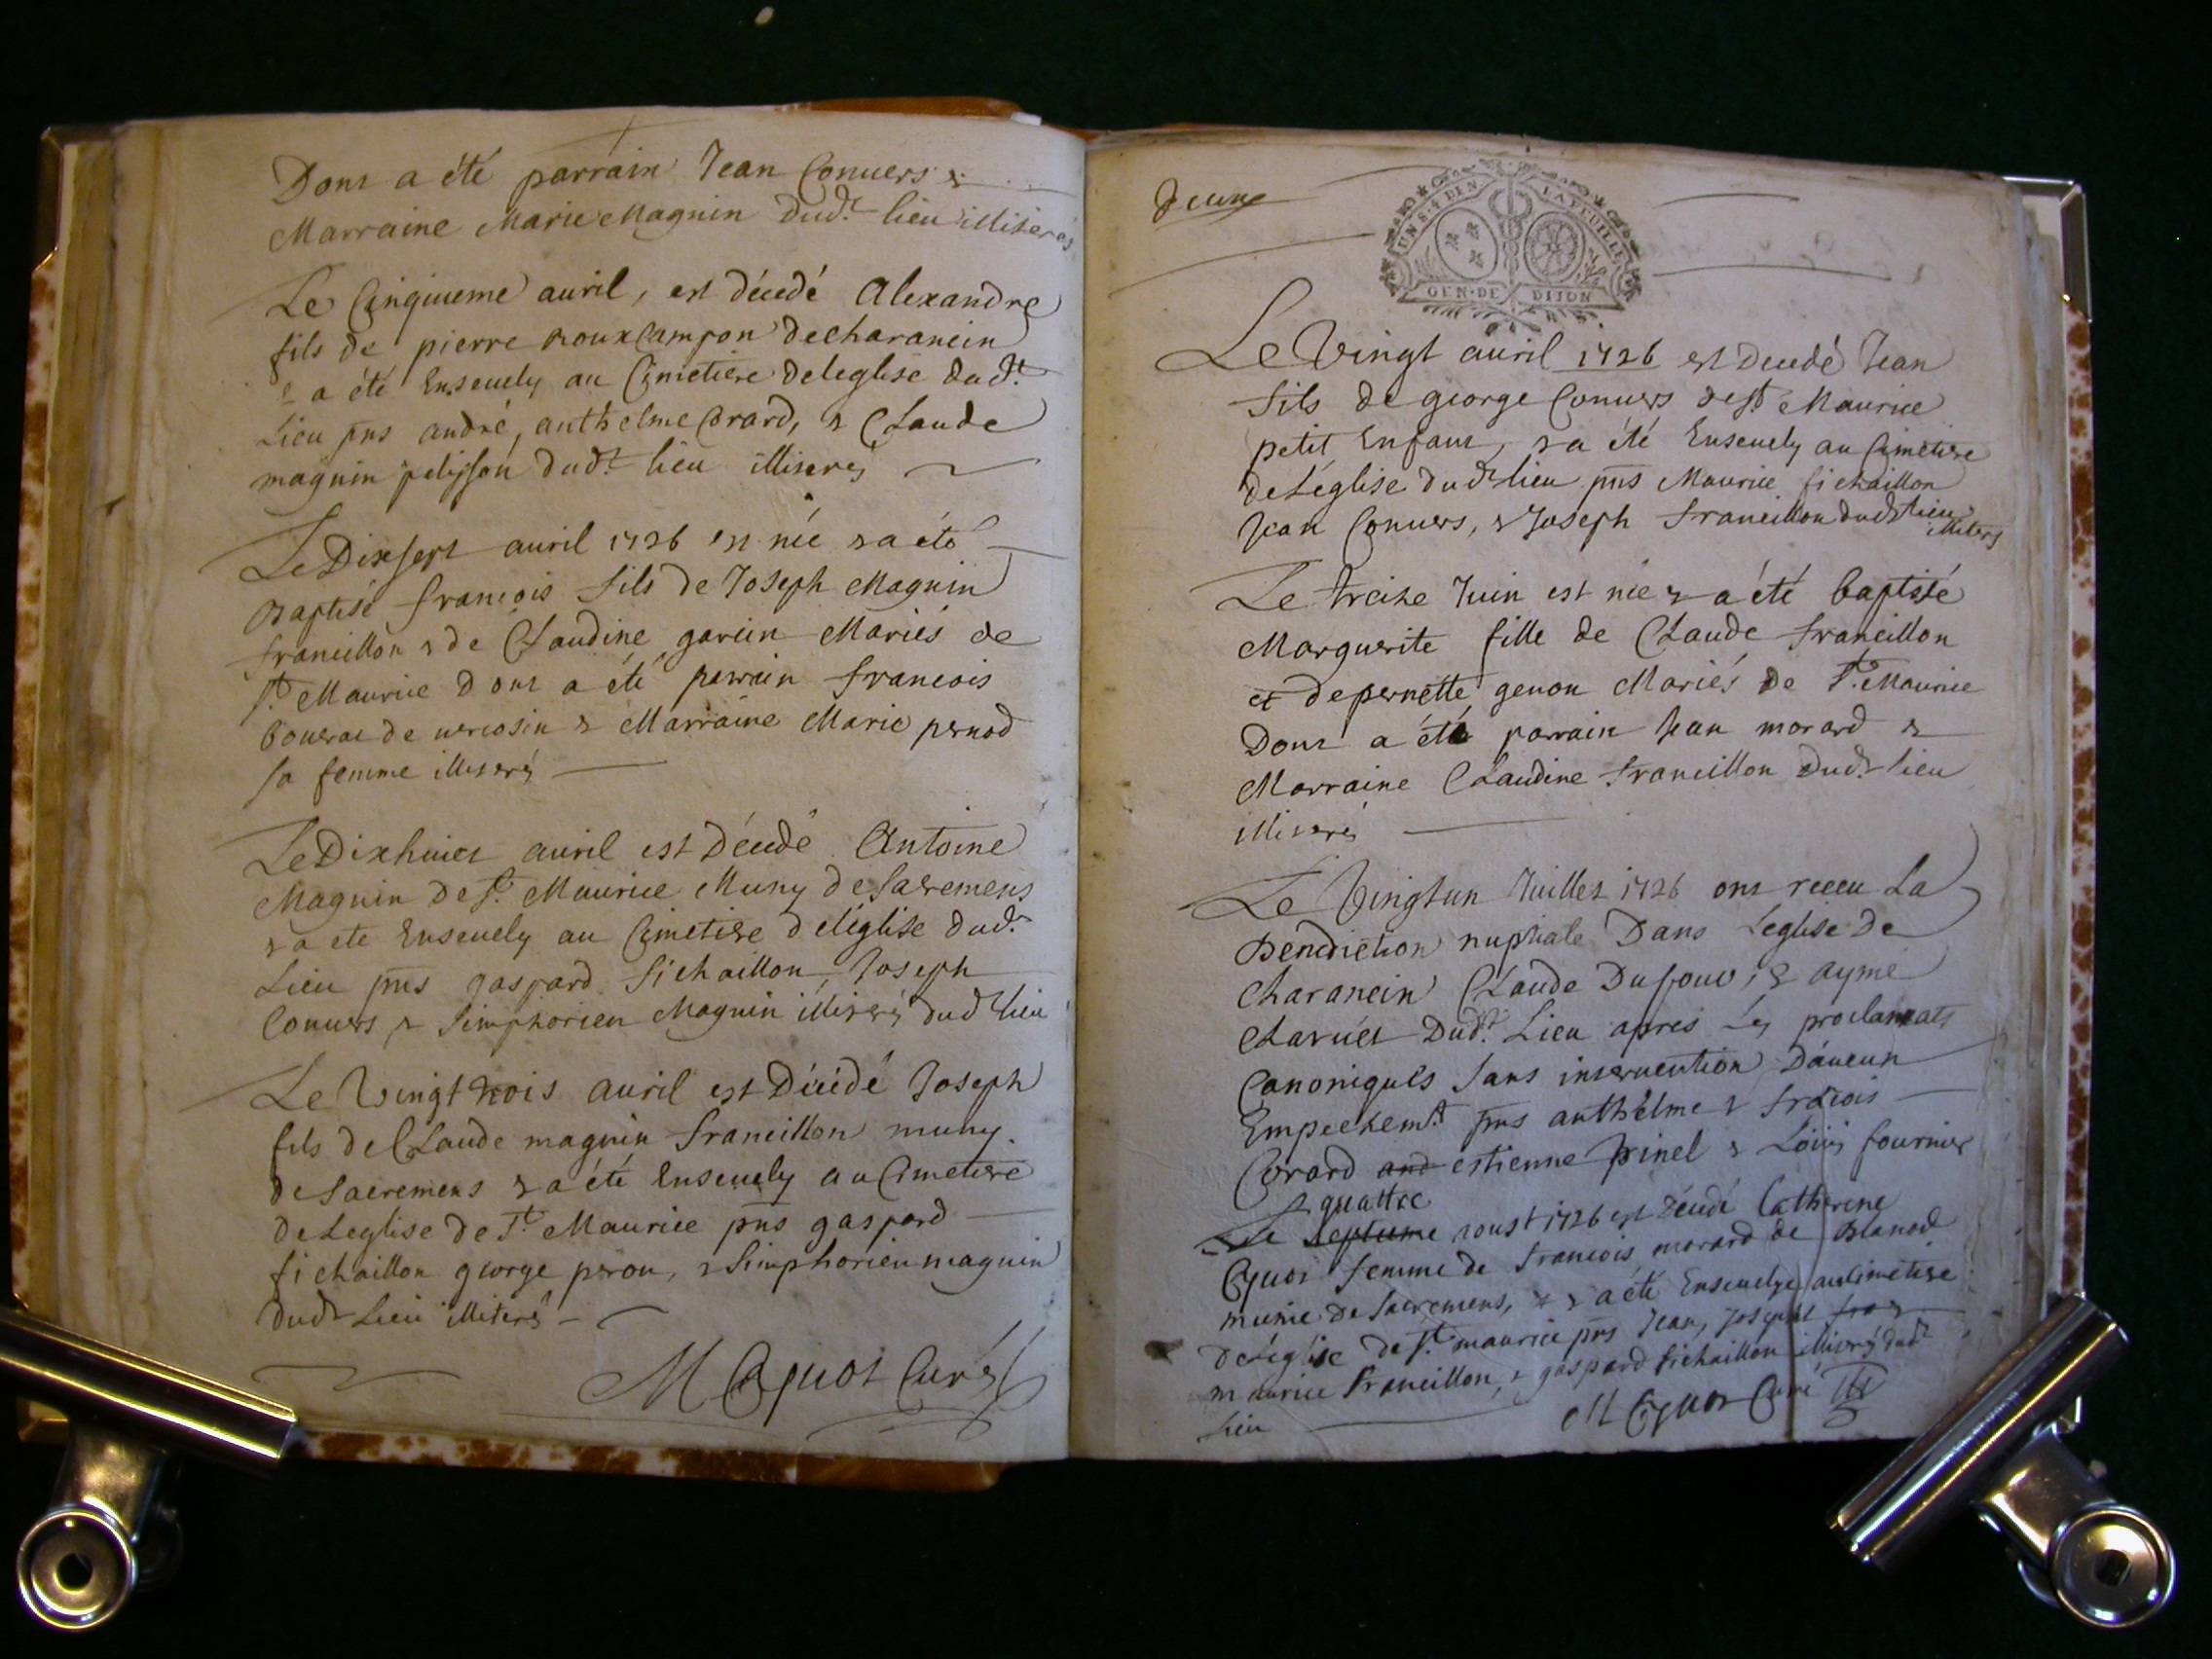 Dont a été parrain Jean Conuers &
Marraine Marie Magnin dud.t lieu illiterés
Le Cinquieme auril, est décedé Alexandre
fils de pierre rouxlamson decharancin
& a été Enseuely au Cimetiere deleglise dud.t
Lieu pns andré, anthelme Corard, & Claude
magnin pelisson dud.t lieu illiterés
Le Dixsept auril 1726 est née & a été
Baptisé francois fils de Joseph Magnin
francillon & de Claudine garcin Mariés de
St. Maurice Dont a été parrain francois
de & Marraine Marie pernod
sa femme illiterés
Le Dixhuict auril est Décedé Antoine
Magnin de St. Maurice Muny de Sacremens
& a ete Enseuely au Cimetiere deléglise dud.t
Lieu pns gaspard fichaillon, Joseph
Conuers & Simphorien Magnin illiterés dud.t lieu
Le Vingt trois auril est Décédé Joseph
fils de Claude magnin francillon muny
de Sacremens & a été Enseuely au Cimetiere
deLeglise de St. Maurice pns gaspard
fichaillon george perou, & Simphorien magnin
dud.t Lieu illiterés
M Cyuot Curé
Deuxe
UN S. 4 DEN LA FEUILLE
GEN. DE DIJON
Le Vingt auril 1726 est Decedé Jean
fils de george Conuers de St Maurice
petit Enfant, & a été Enseuely au Cimetiere
deLéglise dud.t lieu pns Maurice fichaillon
Jean Conuers, & Joseph francillon dud.t lieu
illiterés
Le treize Juin est née & a été baptisé
Marguerite fille de Claude francillon
et depernette genon Mariés de St. Maurice
Dont a été parrain Jean morard &
Marraine Claudine francillon dud.t lieu
illiterés
Le Vingtun Juillet 1726 ont receu La
Benediction nuptiale Dans Leglise de
Charancin Claude Dufour, & ayme
Charuet Dud.t Lieu apres les proclamats
Canoniques Sans interuention Daucun
Empechem.t pns anthelme & frácois
Corard and estienne pinel & Loüis fournier
quattre
Le Septieme aoust 1726 est décédé Catherine
Cyuot femme de francois morard de Blanod
munie de Sacremens, & & a été Enseuelye au Cimetiere
deLéglise de St. maurice pns Jean, Joseph fra &
maurice francillon, & gaspard fichaillon illiterés dud.t
Lieu M Cyuot Curé